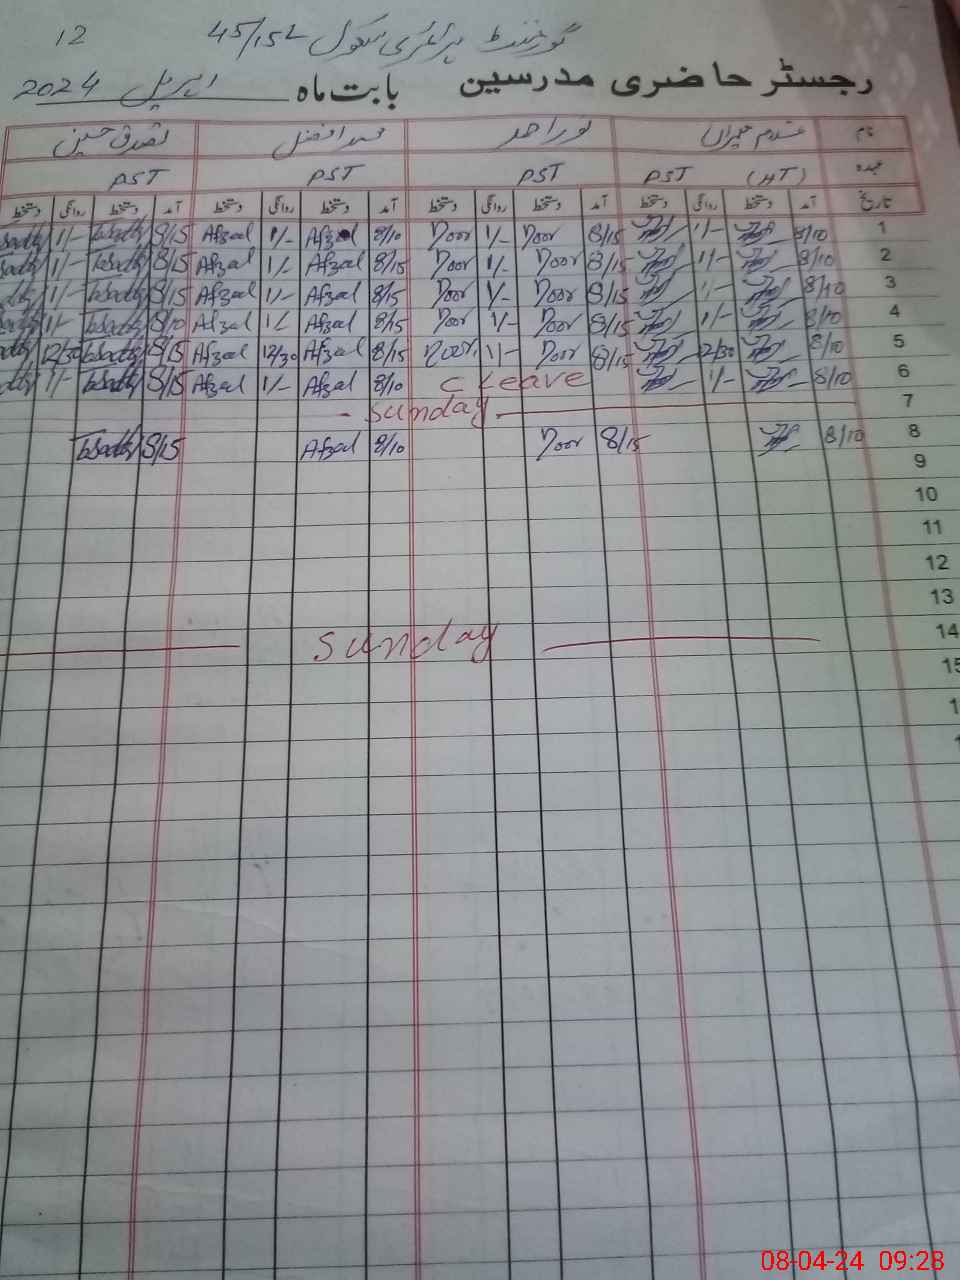 12 گورنمنٹ پرائمری سکول 45/15L
رجسٹر حاضری مدرسین بابت ماہ اپریل 2024
نام غلام جیلانی نور احمد محمد افضل تصدق حسین
عہدہ (HT) PST PST PST PST
تاریخ آمد دستخط روانگی دستخط آمد دستخط روانگی دستخط آمد دستخط روانگی دستخط آمد دستخط روانگی دستخط
1 8/10 1/- 8/15 Noor 1/- Noor 8/10 Afzal 1/- Afzal 8/15 1/-
2 8/10 1/- 8/15 Noor 1/- Noor 8/15 Afzal 1/- Afzal 8/15 1/-
3 8/10 1/- 8/15 Noor 1/- Noor 8/15 Afzal 1/- Afzal 8/15 1/-
4 8/10 1/- 8/15 Noor 1/- Noor 8/15 Afzal 1/- Afzal 8/10 1/-
5 8/10 12/30 8/15 Noor 1/- Noor 8/15 Afzal 12/30 Afzal 8/15 12/30
6 8/10 1/- C Leave 8/10 Afzal 1/- Afzal 8/15 1/-
7 - Sunday -
8 8/10 8/15 Noor 8/10 Afzal 8/15
9
10
11
12
13
14 Sunday
15
08-04-24 09:28